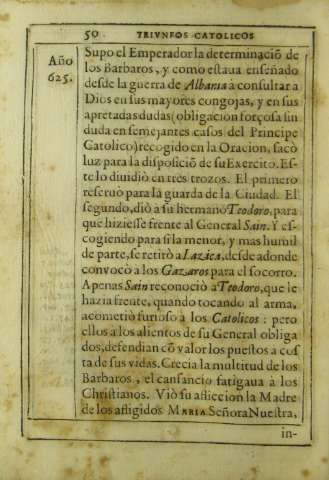 50 TRIVNFOS CATOLICOS
Año
625.
Supo el Emperador la determinaciõ de
los Barbaros, y como estaua enseñado
desde la guerra de Albania a consultar a
Dios en sus mayores congojas, y en sus
apretadas dudas (obligacion forçosa sin
duda en semejantes casos del Principe
Catolico) recogido en la Oracion, sacò
luz para la disposiciõ de su Exercito. Es-
te lo diuidiò en tres trozos. El primero
reseruò para la guarda de la Ciudad. El
segundo, diò a su hermano Teodoro, para
que hiziesse frente al General Sain. Y es-
cogiendo para si la menor, y mas humil
de parte, se retirò a Lazica, desde adonde
convocò a los Gazaros para el socorro.
Apenas Sain reconociò a Teodoro, que le
hazia frente, quando tocando al arma,
acometiò furioso a los Catolicos: pero
ellos a los alientos de su General obliga
dos, defendian cõ valor los puestos a cos
ta de sus vidas. Crecia la multitud de los
Barbaros, el cansancio fatigaua à los
Christianos. Viò su afliccion la Madre
de los afligidos MARIA Señora Nuestra,
in-